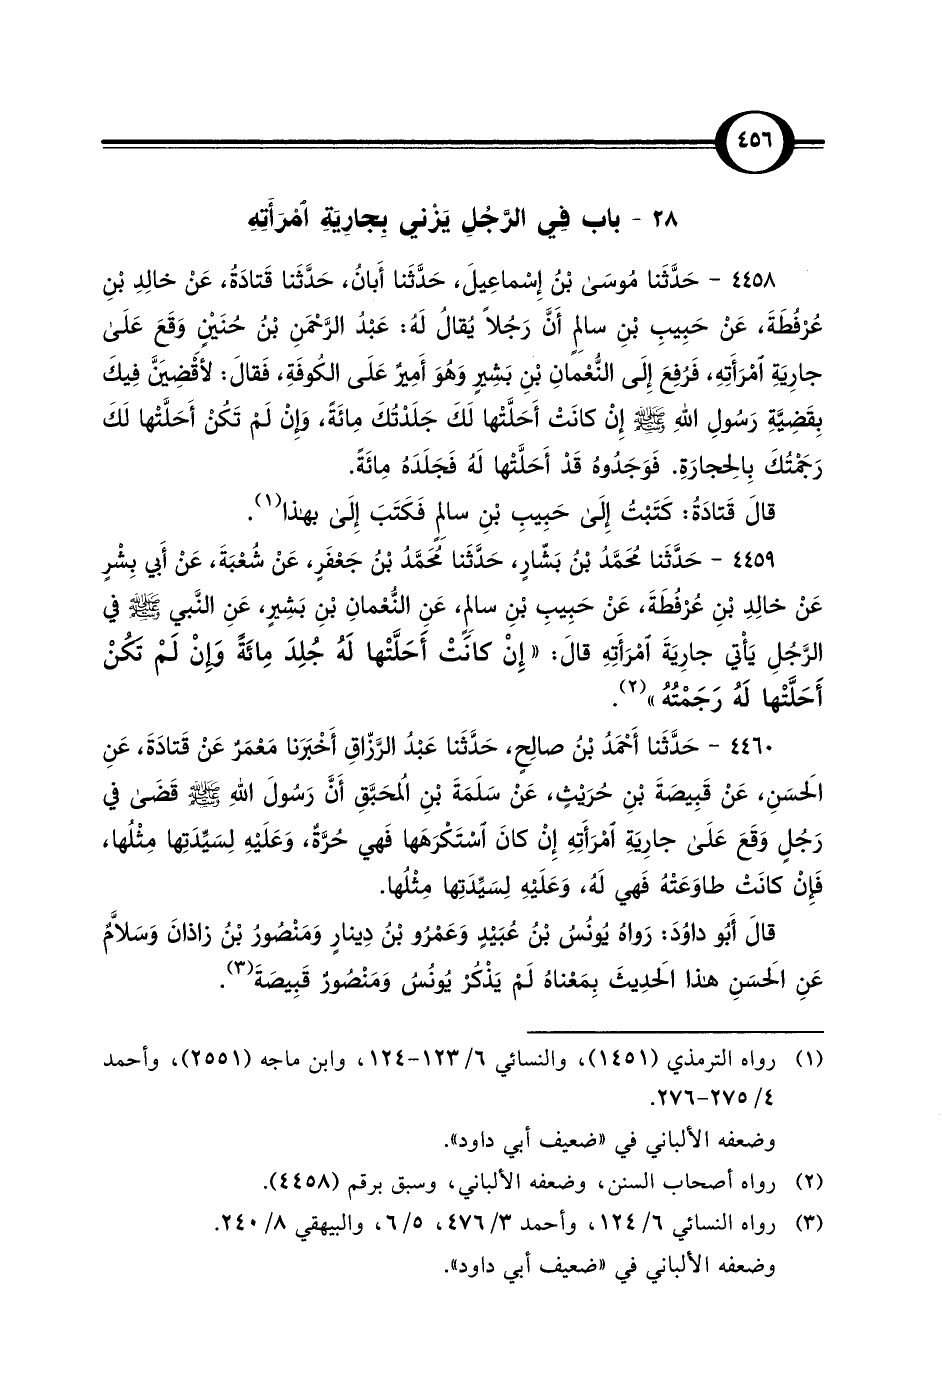 ٤٥٦
٢٨ - باب فِي الرَّجُلِ يَزْني بِجارِيَةِ ٱمْرَأَتِهِ
٤٤٥٨ - حَدَّثَنا مُوسَىٰ بْنُ إِسْماعِيلَ، حَدَّثَنا أَبانُ، حَدَّثَنا قَتادَةُ، عَنْ خالِدِ بْنِ
عُرْفُطَةَ، عَنْ حَبِيبِ بْنِ سالِمٍ أَنَّ رَجُلاً يُقالُ لَهُ: عَبْدُ الرَّحْمَنِ بْنُ حُنَيْنٍ وَقَعَ عَلَىٰ
جارِيَةِ ٱمْرَأَتِهِ، فَرُفِعَ إِلَى النُّعْمانِ بْنِ بَشِيرٍ وَهُوَ أَمِيرٌ عَلَى الكُوفَةِ، فَقالَ: لأَقْضِيَنَّ فِيكَ
بِقَضِيَّةِ رَسُولِ اللهِ ﷺ إِنْ كانَتْ أَحَلَّتْها لَكَ جَلَدْتُكَ مِائَةً، وَإِنْ لَمْ تَكُنْ أَحَلَّتْها لَكَ
رَجَمْتُكَ بِالحِجارَةِ. فَوَجَدُوهُ قَدْ أَحَلَّتْها لَهُ فَجَلَدَهُ مِائَةً.
قالَ قَتادَةُ: كَتَبْتُ إِلَىٰ حَبِيبِ بْنِ سالِمٍ فَكَتَبَ إِلَىٰ بهٰذا(١).
٤٤٥٩ - حَدَّثَنا مُحَمَّدُ بْنُ بَشّارٍ، حَدَّثَنا مُحَمَّدُ بْنُ جَعْفَرٍ، عَنْ شُعْبَةَ، عَنْ أَبي بِشْرٍ
عَنْ خالِدِ بْنِ عُرْفُطَةَ، عَنْ حَبِيبِ بْنِ سالِمٍ، عَنِ النُّعْمانِ بْنِ بَشِيرٍ، عَنِ النَّبي ﷺ في
الرَّجُلِ يَأْتي جارِيَةَ ٱمْرَأَتِهِ قالَ: «إِنْ كانَتْ أَحَلَّتْها لَهُ جُلِدَ مِائَةً وَإِنْ لَمْ تَكُنْ
أَحَلَّتْها لَهُ رَجَمْتُهُ»(٢).
٤٤٦٠ - حَدَّثَنا أَحْمَدُ بْنُ صالِحٍ، حَدَّثَنا عَبْدُ الرَّزّاقِ أَخْبَرَنا مَعْمَرٌ عَنْ قَتادَةَ، عَنِ
الحَسَنِ، عَنْ قَبِيصَةَ بْنِ حُرَيْثٍ، عَنْ سَلَمَةَ بْنِ المُحَبَّقِ أَنَّ رَسُولَ اللهِ ﷺ قَضَىٰ في
رَجُلٍ وَقَعَ عَلَىٰ جارِيَةِ ٱمْرَأَتِهِ إِنْ كانَ ٱسْتَكْرَهَها فَهي حُرَّةٌ، وَعَلَيْهِ لِسَيِّدَتِها مِثْلُها،
فَإِنْ كانَتْ طاوَعَتْهُ فَهي لَهُ، وَعَلَيْهِ لِسَيِّدَتِها مِثْلُها.
قالَ أَبُو داوُدَ: رَواهُ يُونُسُ بْنُ عُبَيْدٍ وَعَمْرُو بْنُ دِينارٍ وَمَنْصُورُ بْنُ زاذانَ وَسَلامٌ
عَنِ الحَسَنِ هٰذا الحَدِيثَ بِمَعْناهُ لَمْ يَذْكُرْ يُونُسُ وَمَنْصُورٌ قَبِيصَةَ(٣).
(١) رواه الترمذي (١٤٥١)، والنسائي ٦/ ١٢٣-١٢٤، وابن ماجه (٢٥٥١)، وأحمد
٤/ ٢٧٥-٢٧٦.
وضعفه الألباني في «ضعيف أبي داود».
(٢) رواه أصحاب السنن، وضعفه الألباني، وسبق برقم (٤٤٥٨).
(٣) رواه النسائي ٦/ ١٢٤، وأحمد ٣/ ٤٧٦، ٥/ ٦، والبيهقي ٨/ ٢٤٠.
وضعفه الألباني في «ضعيف أبي داود».